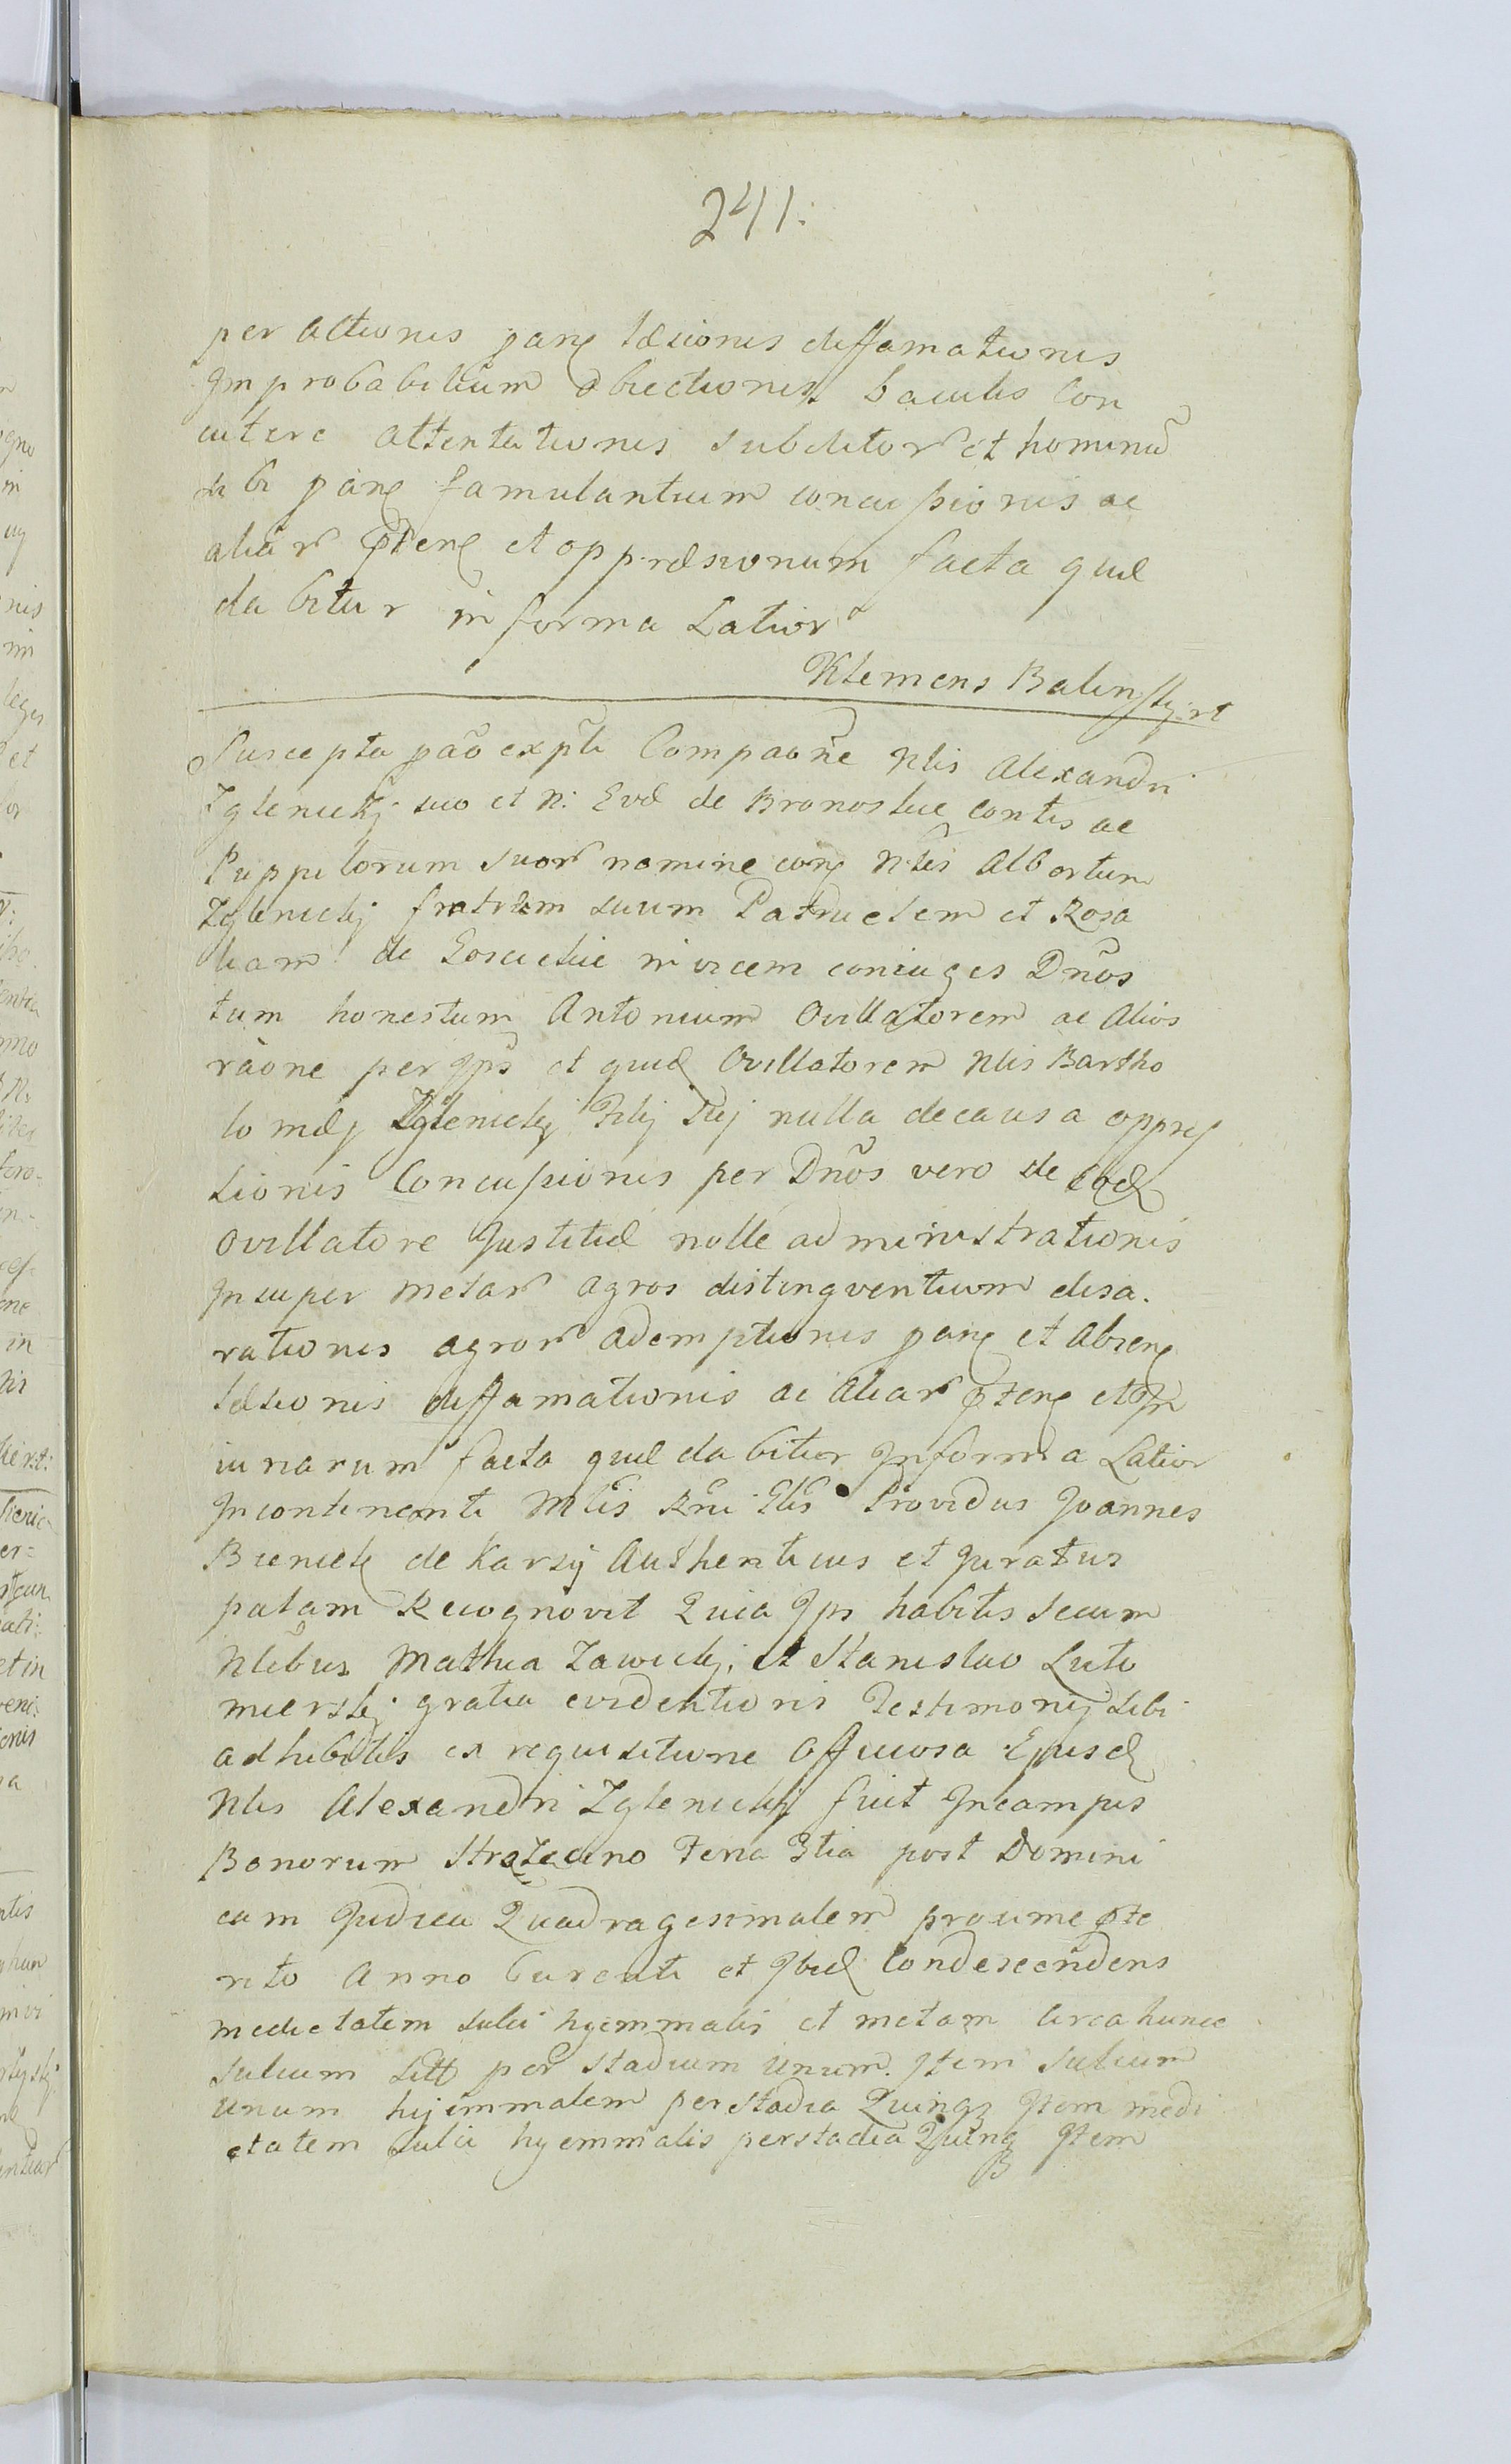 241.
per actionis pane læsionis diffamationis
Improbabilium obiectionis baculis Con
cutere attentationis subditor et hominũ
sibi pane famulantium concussionis ac
aliar et oppræsionum facta quæ
dabitur in forma Latior
Klemens Balinskj rt
Suscepta expti Nlis Alexandri
Zglenickj suo et N: Evæ de Bronoskie Contis ac
Puppilorum suor nomine con Nles Albertum
Zglenickj fratrem suum Patruelem et Rosa
liam de invicem coniuges Dnõs
tum honestum Antonium Ovillatorem ac Alios
raõne per Ips et quid Ovillatorem Nlis Bartho
lomæj Zglenickj Filij sui nulla de causa oppres
sionis Concussionis per Dnõs vero de eod
Ovillatore Justitiæ nolle administrationis
Insuper metar agros distingventium disa.
rationis agror ademptionis pane et
læsionis diffamationis ac Aliar et In
iuriarum facta quæ dabitur In forma Latior
Incontinenti Mlis Rñi Glis Providus Joannes
Bieniek de Karsy Authenticus et Juratus
palam Recognovit Quia Ips habitis secum
Nlibus Mathia Zawickj, et Stanislao Luto
mierskj gratia evidentioris Testimonij sibi
adhibitis ex requisitione Officiosa Ejusd
Nlis Alexandri Zglenickj fuit In campis
Bonorum Strozecino Feria 3tia post Domini
cam Judica Quadragesimalem proxime pte
rito Anno Curenti et Ibid Condescendens
medietatem sulci hyemmalis et metam circa hunc
sulcum sitt per stadium unum. Item sulcum
unum hyemmalem per stadia Quinq Item medi
etatem sulci hyemmalis per stadia Quinq Item
B